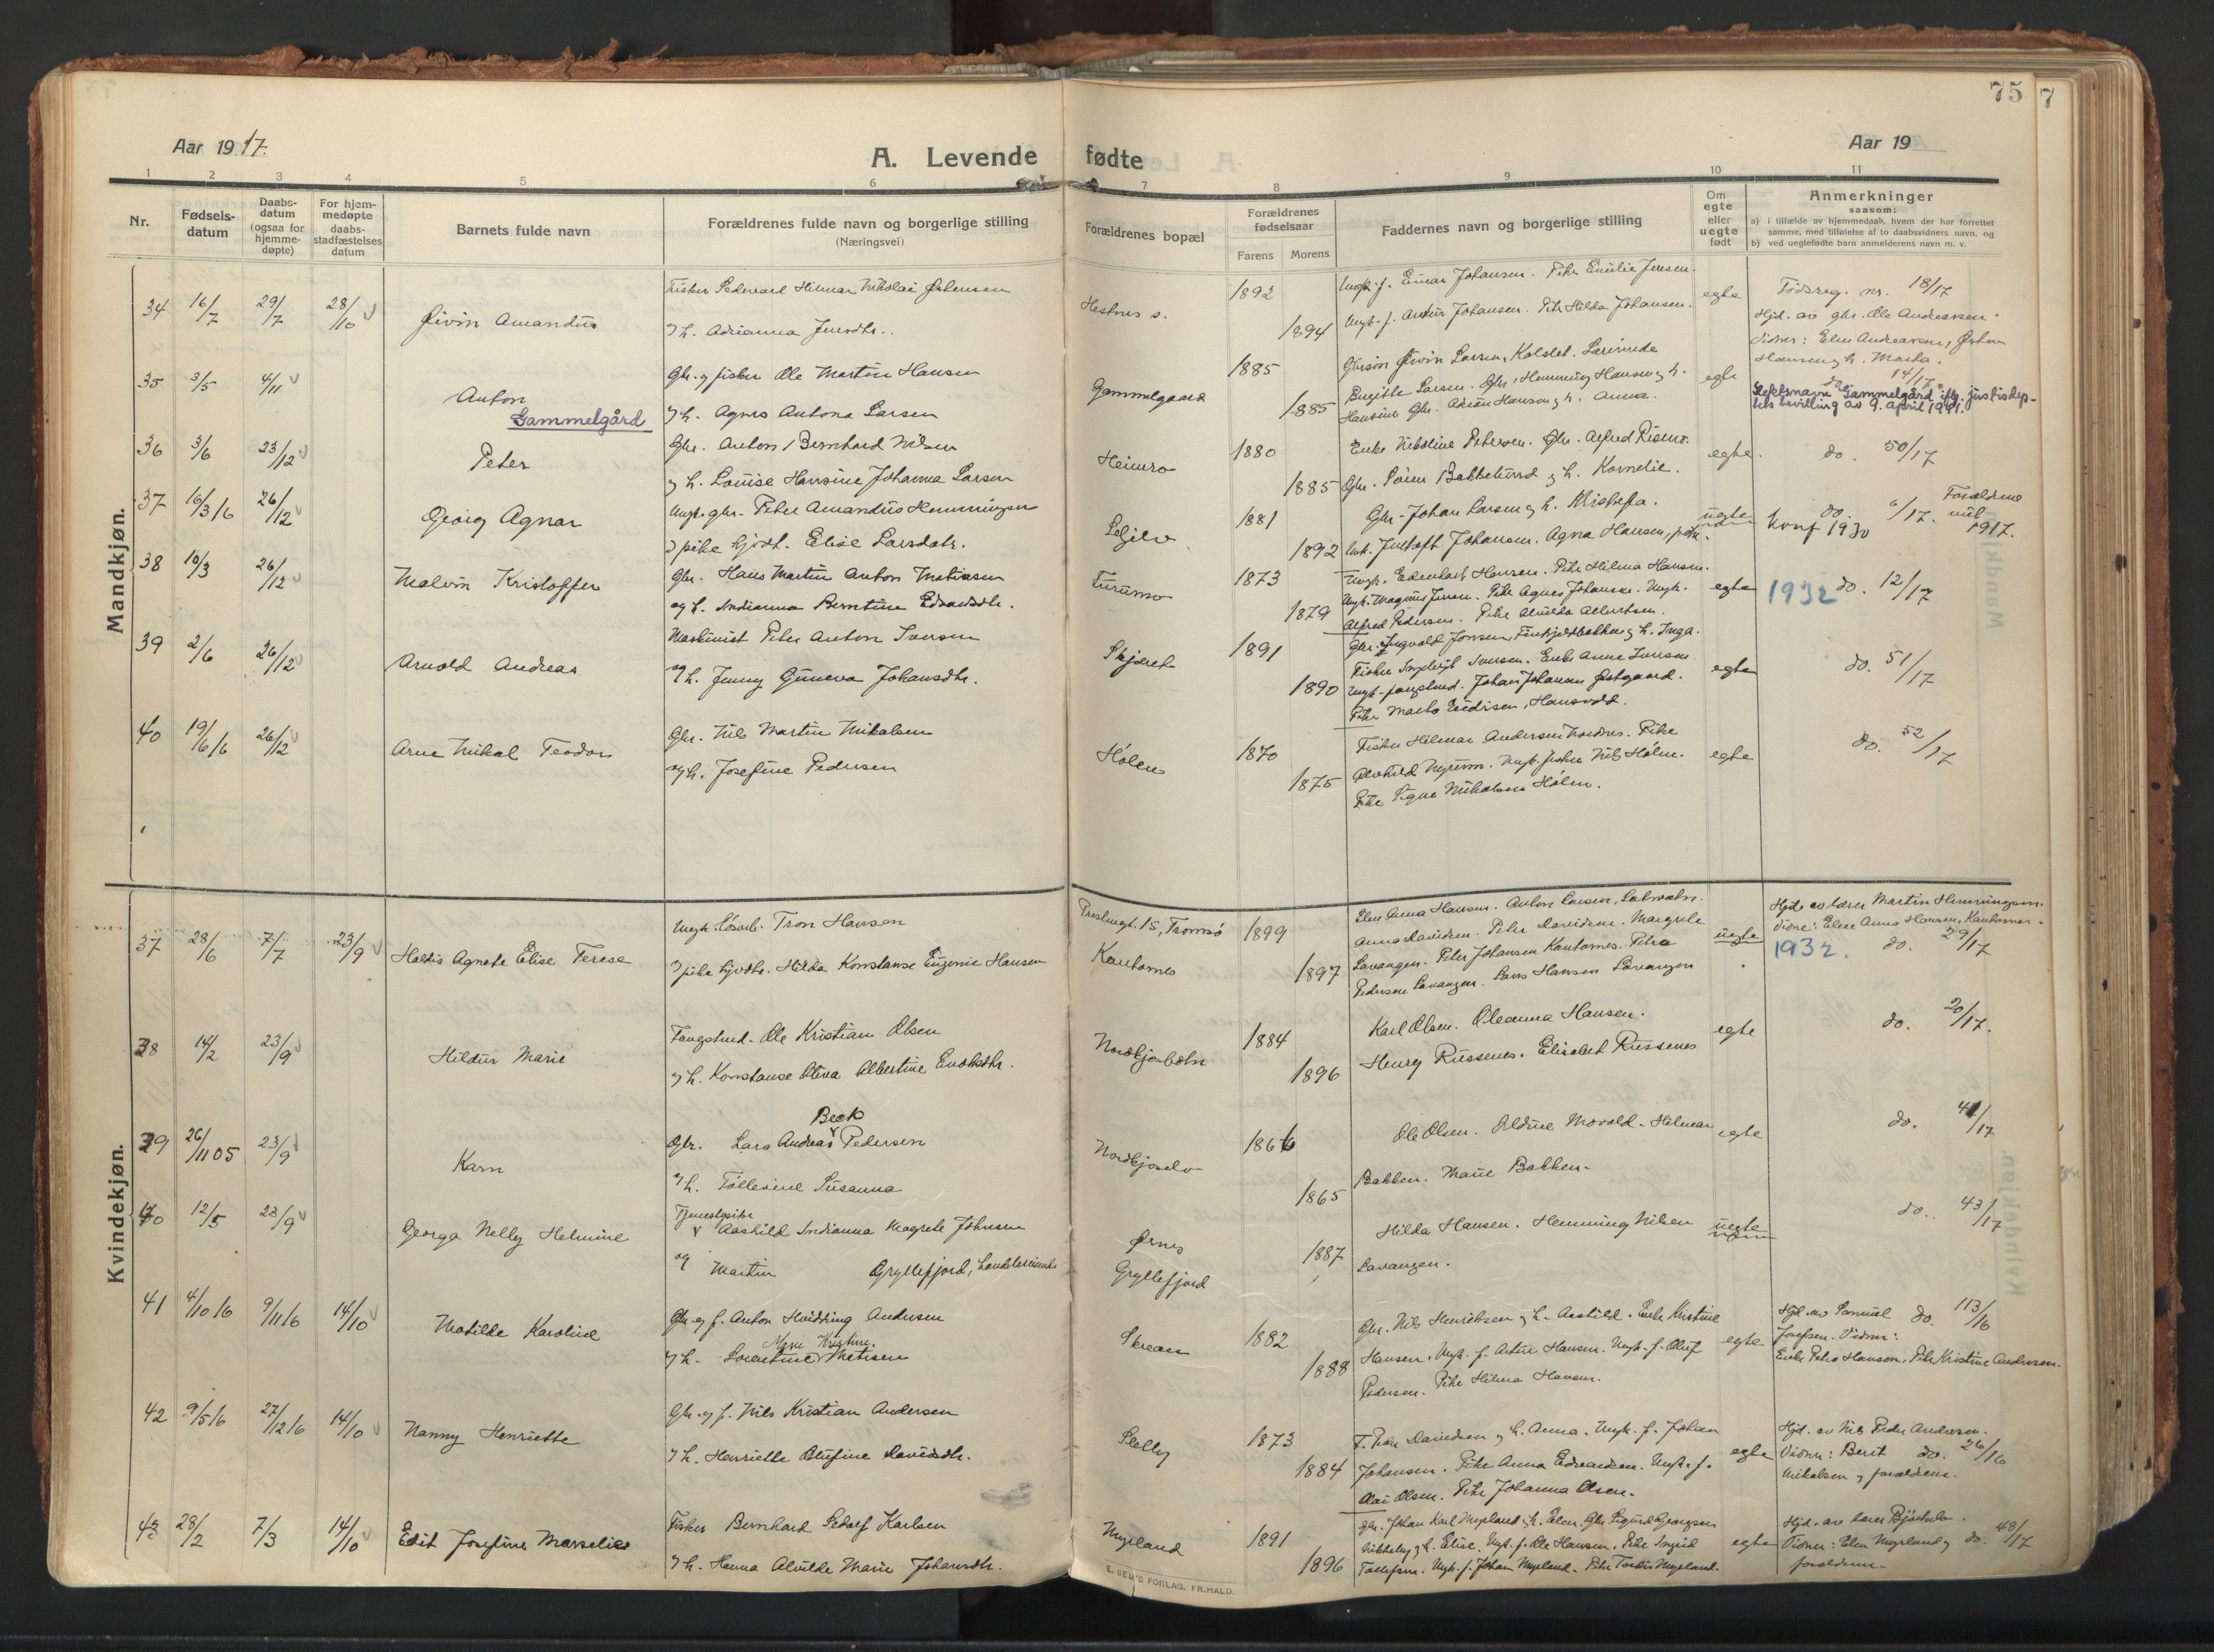 75 7
Aar 1917.
A. Levende fødte
Aar 19
1 2 3 4 5 6 7 8 9 10 11
Nr.
Fødsels-
datum
Daabs-
datum
(ogsaa for
hjemme-
døpte)
For hjem-
medøpte
daabs-
stadfæstelses
datum
Barnets fulde navn
Forældrenes fulde navn og borgerlige stilling
(Næringsvei)
Forældrenes bopæl
Forældrenes
fødselsaar
Farens Morens
Faddernes navn og borgerlige stilling
Om
egte
eller
uegte
født
Anmerkninger
saasom:
a) i tilfælde av hjemmedaab, hvem der har forrettet
samme, med tilføielse af to daabsvidners navn, og
b) ved uegtefødte barn anmelderens navn m. v.
Mandkjøn.
34 16/7 29/7 28/10 Øivin Amandus
Hilmar Nikolai Østensen
og h. Adrianna
Hestnes s. 1892 1894
Ungk. f. Einar Johansen. Pike Emilie Jensen.
Ungk. f. Johansen. Pike Hilda Johansen.
egte
Fødsreg. nr. 18/17
Hjd. av gbr. Ole Andreassen.
Vidner: Elen Andreassen, Østen
Hansen og h. Marta.
35 3/5 4/11 Anton
Gammelgård
Gbr. og fisker Ole Martin Hansen
og h. Agnes Antona Larsen
Gammelgaard 1885 1885
Øivin Larsen, Kolslet.
Birgitte Larsen. Gbr. Henning Hansen og h.
Hansine Gbr. Adrian Hansen og h. Anna.
egte
do. 14/17
Slektsnavn "Gammelgård" iflg. justisdep-
tets bevilling av 9. april 1941.
36 3/6 23/12 Peter
Gbr. Anton Bernhard Nilsen
og h. Louise Hansine Johanna Larsen
Heimro 1880 1885
Enke Nikoline Petersen. Gbr. Alfred
Gbr. Søren Bakkelund og h. Kornelie.
egte.
do. 50/17
37 16/3 16 26/12 Georg Agnar
Ungk. gbr. Peter Amandus Henningsen
og pike hjvdt. Elise Larsdatr.
Seljelv 1881 1892
Gbr. Johan Larsen og h. Kristofa.
Johansen. Agna Hansen, pike.
uegte
do. 6/17. Forældrene
1917.
konf 1930
38 10/3 26/12 Malvin Kristoffer
Gbr. Hans Martin Anton Matiasen
og h. Indianna Berntine Edvardsdtr.
Furumo 1873 1879
Ungk. Edenhart Hansen. Pike Hilma Hansen.
Ungk. Magnus Jensen. Pike Agnes Johansen. Ungk.
Alfred Pedersen. Pike Alvilda Albertsen.
egte
1932 do. 12/17
39 2/6 26/12 Arnold Andreas
Maskinist Peter Anton Iversen
og h. JennyGuneva Johansdtr.
Skjæret 1891 1890
Gbr. Ingvald Jonsen, og h. Inga.
Fisker Iversen. Enke Anne Iversen
Ungk. fangstmd. Johan Johansen Østgaard.
Pike Marta
egte
do. 51/17
40 19/6 16 26/12 Arne Mikal Teodor
Gbr. Nils Martin Mikalsen
og h. Josefine Pedersen
Holen 1870 1875
Fisker Hilmar Andersen Pike
Alvhild Ungk. fisker Nils Holen.
Pike Signe Mikalsen Holen.
egte
do. 52/17
Kvindekjøn.
37 28/6 7/7 23/9 Haldis Agnete Elise Terese
Ungk. Tron Hansen
og pike hjvdt. Hilda Konstanse Eugenie Hansen
15, Tromsø
Kantornes
1899 1897
Elen Anna Hansen. Anton Larsen,
Anna Davidsen. Peter Davidsen. Margrete
Lavangen. Peter Johansen Kantornes. Petra
Pedersen Lavangen. Lars Hansen Lavangen
uegte
Hjd. av lærer Martin Henningsen.
Vidne: Elen Anna Hansen, Kantornes.
1932. do. 29/17
38 14/2 23/9 Hildur Marie
Fangstmd. Ole Kristian Olsen
og h. Konstanse Oliva Albertine
Nordkjosbotn 1884 1896
Karl Olsen. Oleanna Hansen.
Henry Russenes. Elisabet Russenes
egte
do. 20/17.
39 26/11 05 23/9 Karn
Beck
Gbr. Lars Andreas Pedersen
og h. Tollevine Susanna
Nordkjoselv 1866 1865
Ole Olsen. Aldine Movold. Hilmar
Bakken. Marie Bakken.
egte
do. 41/17
40 12/5 23/9 Georga Nelly Helmine
Tjenestpike
Aashild Indianna Magrete Johnsen
og Martin Gryllefjord,
Ørnes
Gryllefjord
1887
Hilda Hansen. Henning Nilsen
Lavangen.
uegte
do. 43/17
41 4/10 16 9/11 16 14/10 Matilde Karoline
Gbr. og f. Anton Hvidding Andersen
Marie Kristine
og h. Lorentine Metisen
1882 1888
Gbr. Nils Henriksen og h. Aashild. Enke Kristine
Hansen. Ungk. f. Artur Hansen. Ungk. f. Oluf
Pedersen. Pike Hilma Hansen.
egte
Hjd. av Samuel do. 113/16
Josefsen. Vidner:
Enke Petra Hansen, Pike Kristine Andersen.
42 9/5 16 27/12 16 14/10 Nanny Henriette
Gbr. og f. Nils Kristian Andersen
og h. Henriette Olufine Davidsdtr.
Sletby 1873 1884
F. Peder Davidsen og h. Anna. Ungk. f. Johan
Johansen. Pike Anna Edvardsen. Ungk. f.
Olai Olsen. Pike Johanna Olsen.
egte
Hjd. av Nils Peder Andersen.
Vidner: Berit do. 26/16
Mikalsen og forældrene.
43 28/2 7/3 14/10 Edit Josefine Marselie
Fisker Bernhard Sedolf Karlsen
og h. Henna Alvilde Marie Johansdtr.
Myrland 1891 1896
Gbr. Johan Karl Myrland og h. Elen. Gbr. Sigurd Georgsen
og h. Elise. Ungk. f. Ole Hansen. Pike Ingrid
Tollefsen. Ungk. f. Johan Myrland. Pike Myrland.
egte
Hjd. av lærer
Vidner: Elen Myrland og do. 48/17
forældrene.
E. SEM'S FORLAG, FR.HALD.